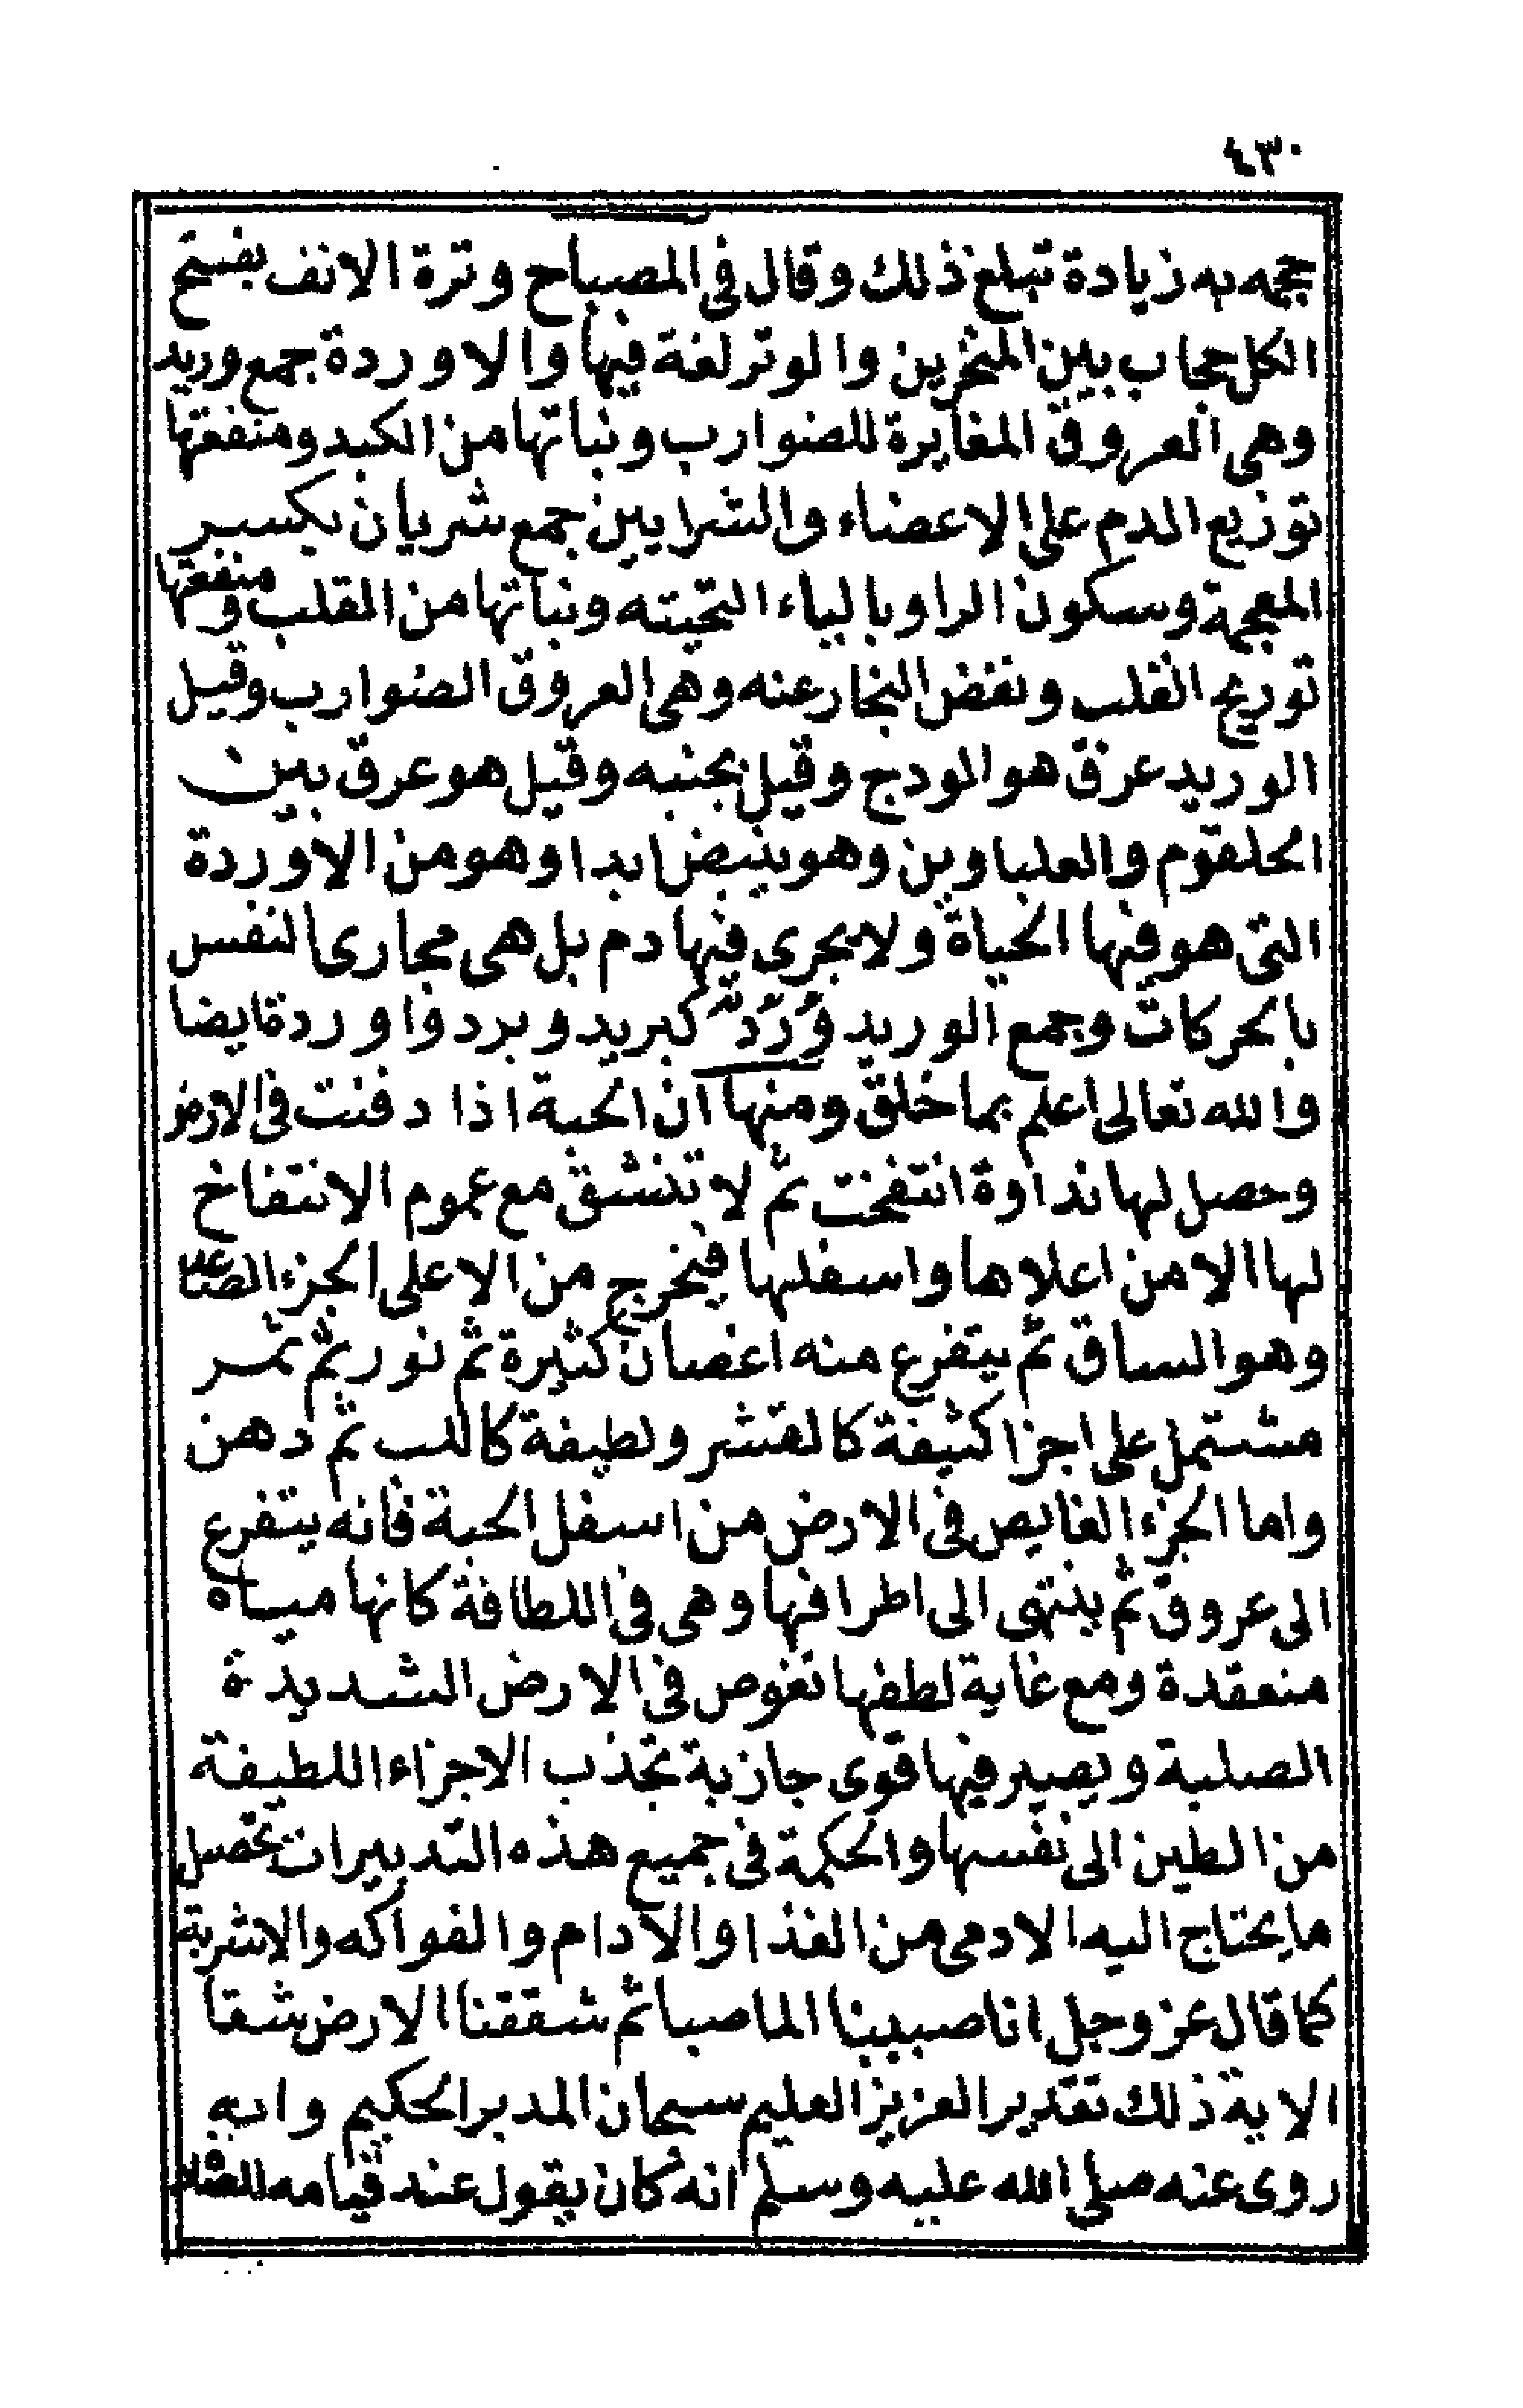 ٤٣٠
حجمه به زيادة تبلغ ذلك وقال فى المصباح وترة الانف بفتح
الكل حجاب بين المنخرين والوتر لغة فيها والاوردة جمع وريد
وهى العروق المغايرة للضوارب ونباتها من الكبد ومنفعتها
توزيع الدم على الاعضاء والشرايين جمع شريان بكسر
المعجمة وسكون الرا وبالياء التحيته ونباتها من القلب ومنفعتها
تورىح القلب ونفض البخار عنه وهى العروق الضوارب وقيل
الوريد عرق هو الودج وقيل بجنبه وقيل هو عرق بين
الحلقوم والعلباوين وهو ينبض ابدا وهو من الاوردة
التى هو فيها الحياة ولا يجرى فيها دم بل هى مجارى النفس
بالحركات وجمع الوريد وُرُدٌ كبريد وبرد واوردة ايضا
والله تعالى اعلم بما خلق ومنها ان الحبة اذا دفنت فى الارض
وحصل لها نداوة انتفخت ثم لا تنشق مع عموم الانتفاخ
لها الا من اعلاها واسفلها فيخرج من الاعلى الجزء الصاعد
وهو الساق ثم يتفرع منه اغصان كثيرة ثم نور ثم ثمر
مشتمل على اجزا كثيفة كالقشر ولطيفة كاللب ثم دهن
واما الجزء الغايص فى الارض من اسفل الحبة فانه يتفرع
الى عروق ثم ينتهى الى اطرافها وهى فى اللطافة كانها مياه
منعقدة ومع غاية لطفها تغوص فى الارض الشديدة
الصلبة ويصير فيها قوى جازبة تجذب الاجزاء اللطيفة
من الطين الى نفسها والحكمة فى جميع هذه التدبيرات تحصل
ما يحتاج اليه الادمى من الغذا والادام والفواكه والاشربة
كما قال عز وجل انا صببنا الما صبا ثم شققنا الارض شقا
الاية ذلك تقدير العزيز العليم سبحان المدبر الحكيم وانه
روى عنه صلى الله عليه وسلم انه كان يقول عند قيامه للصلاة